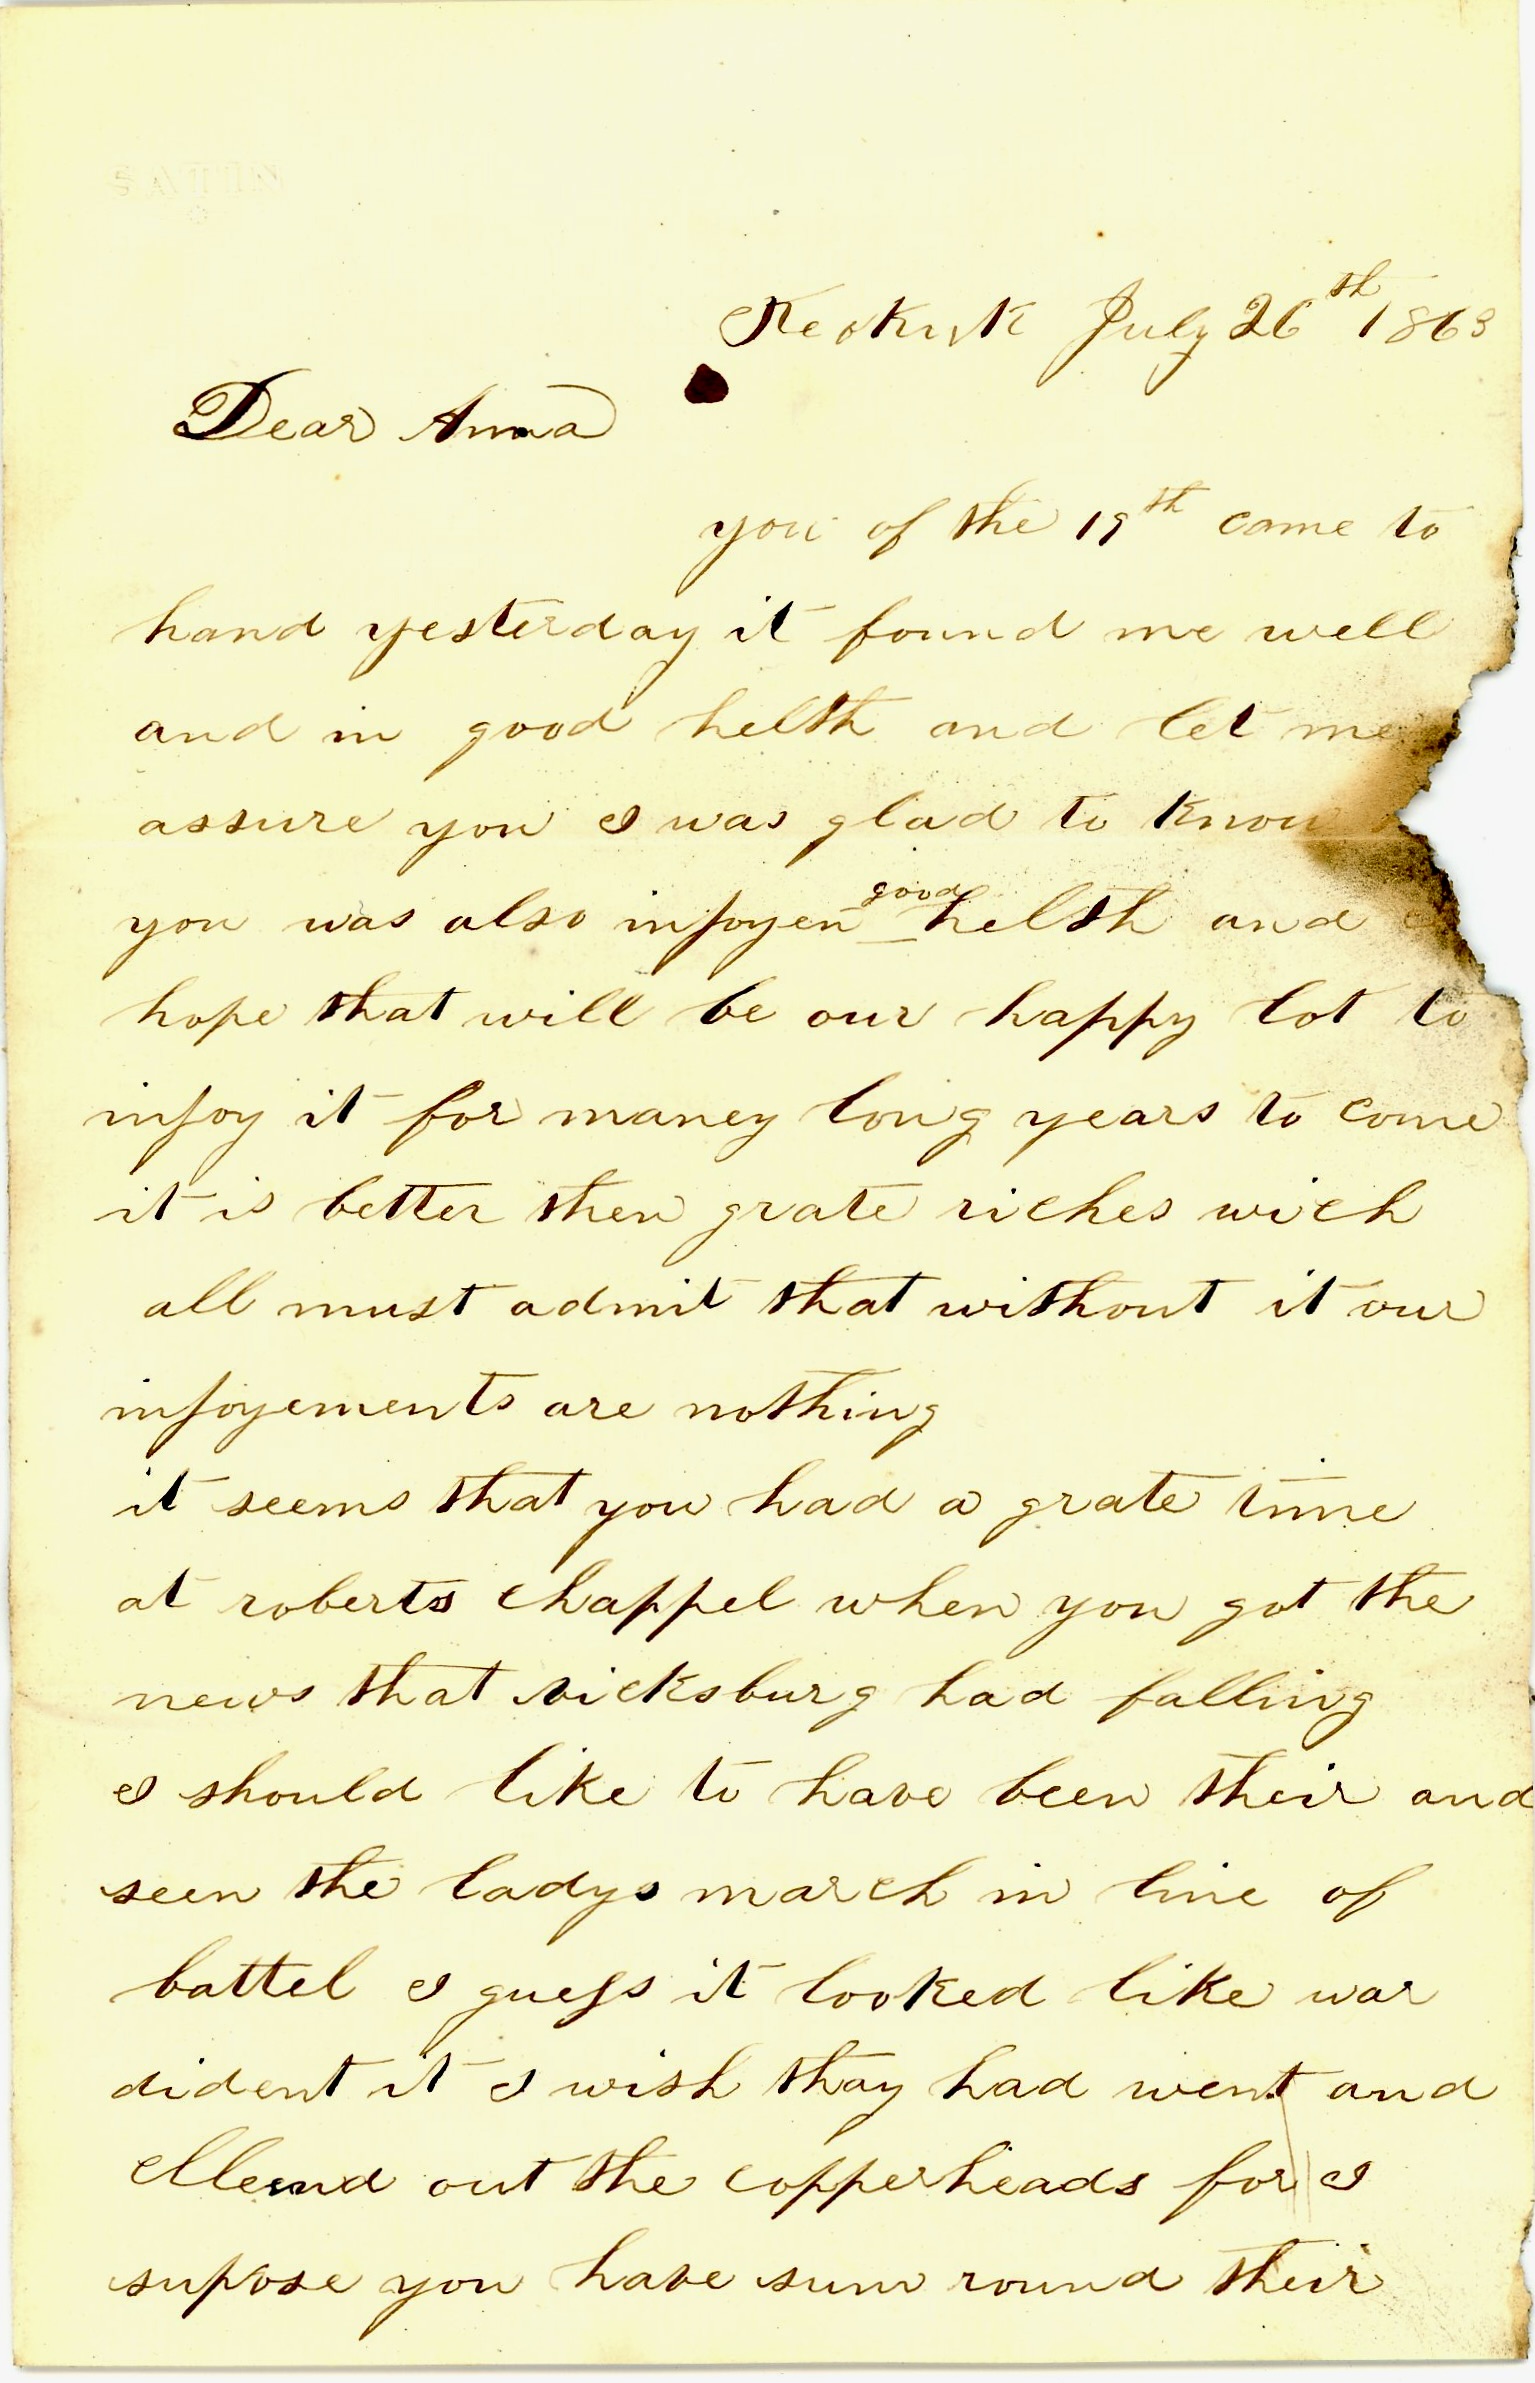 SATIN
Keokuk July 26th 1863
Dear Anna
you of the 19th came to
hand yesterday it found me well
and in good helth and let me
assure you I was glad to know
you was also injoyen good helth and
hope that will be our happy lot to
injoy it for maney long years to come
it is better then grate riches wich
all must admit that without it our
injoyements are nothing
it seems that you had a grate time
at roberts chappel when you got the
news that vicksburg had falling
I should like to have been their and
seen the ladys march in line of
battel I guess it looked like war
dident it I wish thay had went and
out the copperheads for I
supose you have sum round their